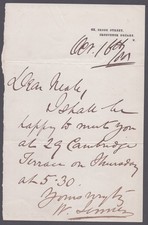 Oct. 16th
Dear Neale,
I shall be
happy to meet you
at 29 Cambridge
Terrace on Thursday
at 5-30.
Yours truly
W.